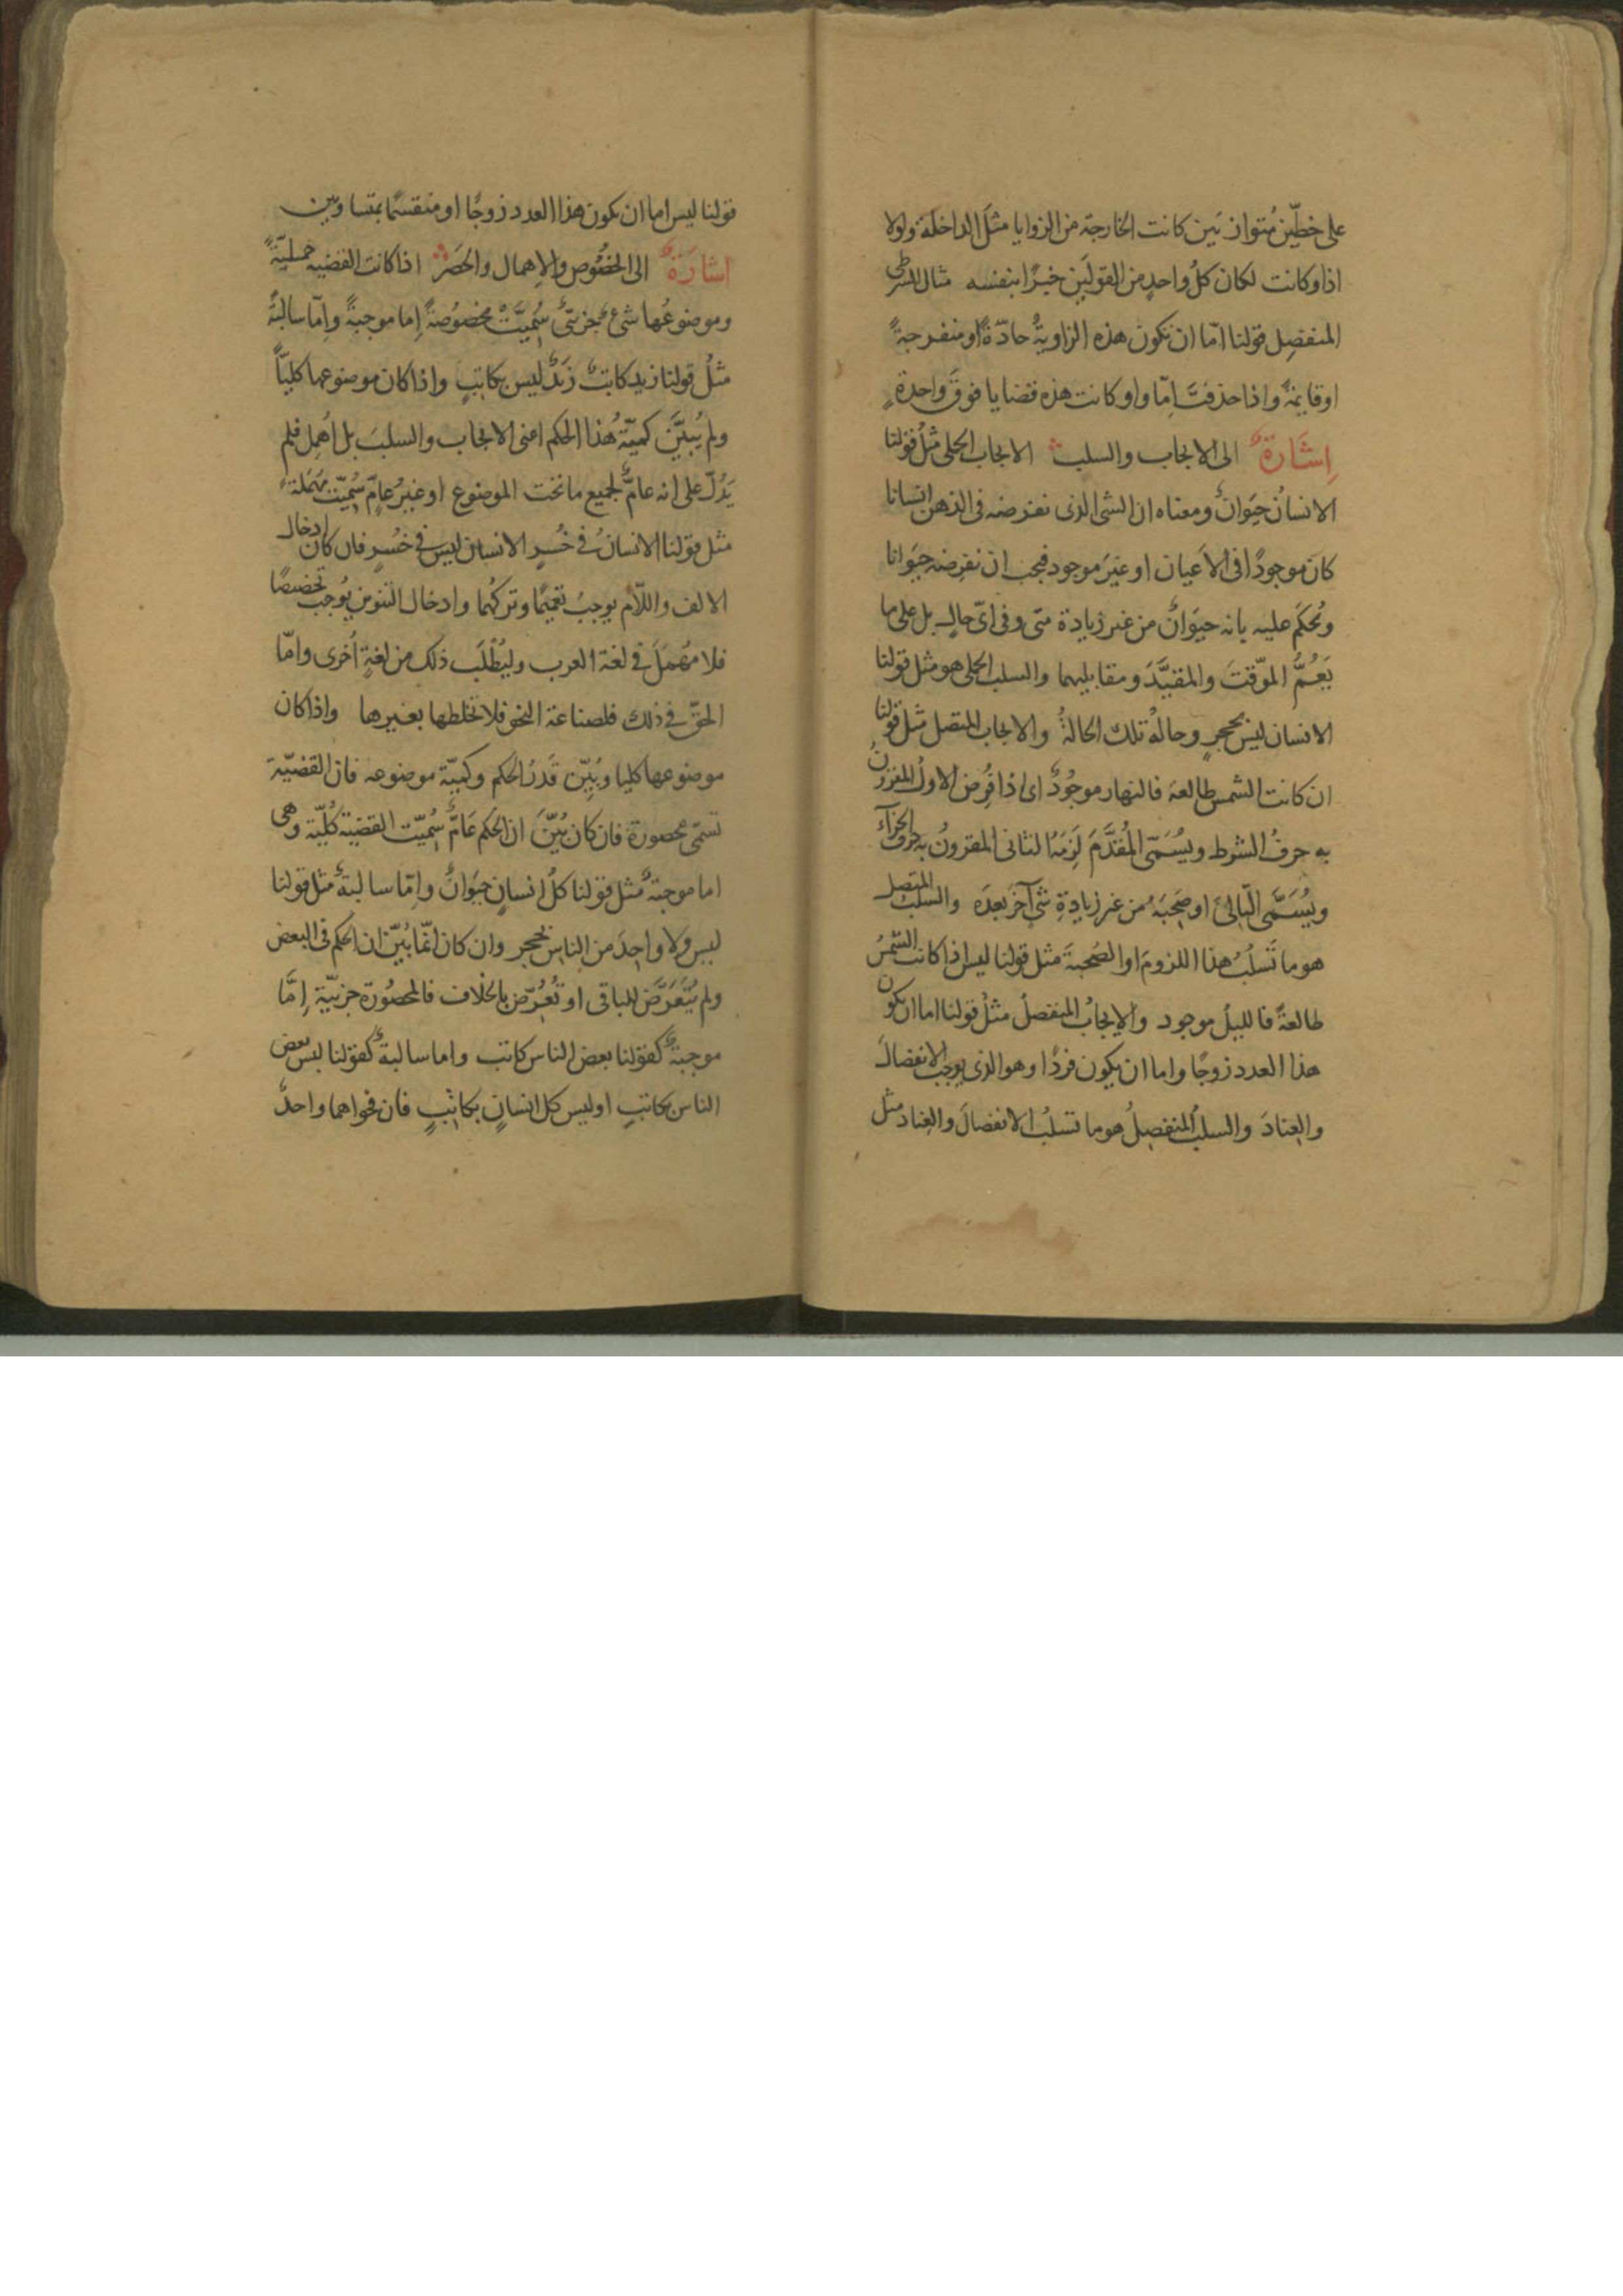 على خطّين مُتوازيَين كانت الخارجة من الزوايا مثلَ الداخلة ولولا
اذا وكانت لكان كلُ واحدٍ من القولَين خبرًا بنفسه مثال الشرطى
المنفصِل قولنا امّا ان تكون هذه الزاويةُ حادّةً او منفرجةً
او قايمةً واذا حذفتَ امّا واو كانت هذه قضايا فوقَ واحدةٍ
اِشَارَةٌ الى الايجاب والسلب الايجاب الحملى مثلُ قولنا
الانسانُ حيَوانٌ ومعناه ان الشى الذى نفرضه فى الذهن انسانا
كان موجودًا فى الاَعيان او غيرَ موجود فيجب ان نفرِضه حيَوانا
ونُحكَم عليه بانه حيَوانٌ من غير زيادة متى وفى اىّ حالٍ بل على ما
يَعُمُّ الموّقتَ والمقيَّدَ ومقابليهما والسلب الحملى هو مثل قولنا
الانسان ليس بحجرٍ وحالُهُ تلك الحالةُ والايجاب المتصل مثل قولنا
ان كانت الشمس طالعة فالنهار موجُودٌ اى اذا فُرِض الاولُ المقرونُ
به حرفُ الشرط ويُسَمّى المُقدَّمَ لَزِمَهُ التانى المقرونُ به حرفُ الجزآء
ويُسَمَّى التّالىَ او صَحِبَهُ من غير زيادةِ شىٍ آخرَ بعدَه والسلب المتصل
هو ما تَسلبُ هذا اللزومَ او الصُحبةَ مثل قولنا ليس اذا كانت الشمسُ
طالعةً فالليلُ موجود والايجابُ المنفصلُ مثلُ قولنا اما ان يكون
هذا العدد زوجًا واما ان يكون فردًا وهو الذى يوجب الانفصالَ
والعِنادَ والسلبُ المنفصِلُ هو ما تسلبُ الانفصالَ والعِنادَ مثل
قولنا ليس اما ان يكون هذا العدد زوجًا او منقسمًا بمتساويين
اشارَةٌ الى الخصُوص والاِهمال والحَصَر اذا كانت القضيه حمليّةً
وموضوعُها شىءٌ جزىّىٌ سُمِيَّتْ مخصُوصةً اِما موجبةً واِمّا سالبةً
مثلُ قولنا زيد كاتبٌ زَيدٌ ليس بكاتبٍ واذا كان موضوعها كليّاً
ولم يُبيَّنَ كميّةُ هذا الحكم اعنى الايجاب والسلبَ بل اُهمِل فلم
يَدُلّ على انه عامٌّ لجميع ما تحت الموضوع او غيرُ عامٍّ سُمِيّت مُهمَلةً
مثل قولنا الانسانُ فى خُسرٍ الانسان ليس فى خُسرٍ فان كان ادخال
الالف واللاّم يوجبُ تعميمًا وتركُهما وادخال التنوين يُوجبُ تخصيصًا
فلا مُهمَلَ فى لغة العرب وليُطْلَب ذلك من لغةٍ اُخرى وامّا
الحقّ فى ذلك فلصناعة النحو فلا نخلطها بغيرها واذا كان
موضوعها كليا وبُيّن قَدرُ الحكم وكميّة موضوعه فان القضيّة
تسمّى محصورة فان كان بُيّنَ ان الحكم عَامٌّ سُمِيّت القضية كُليّة وهى
اما موجبةٌ مثل قولنا كلُ انسانٍ حيَوانٌ واِمّا سالبةٌ مثل قولنا
ليس ولا واحِدَ من الناس بحجر وان كان انّما بُيّن ان الحكم فى البعض
ولم يُتَعَرَّضَ للباقى او تُعُرّض بالخلاف فالمحصُورة جزىيّة اِمَّا
موجبةٌ كقولنا بعض الناس كاتب واما سالبةٌ كقولنا ليس بعض
الناس بكاتبٍ او ليس كل انسانٍ بكاتبٍ فان فحواهما واحدٌ